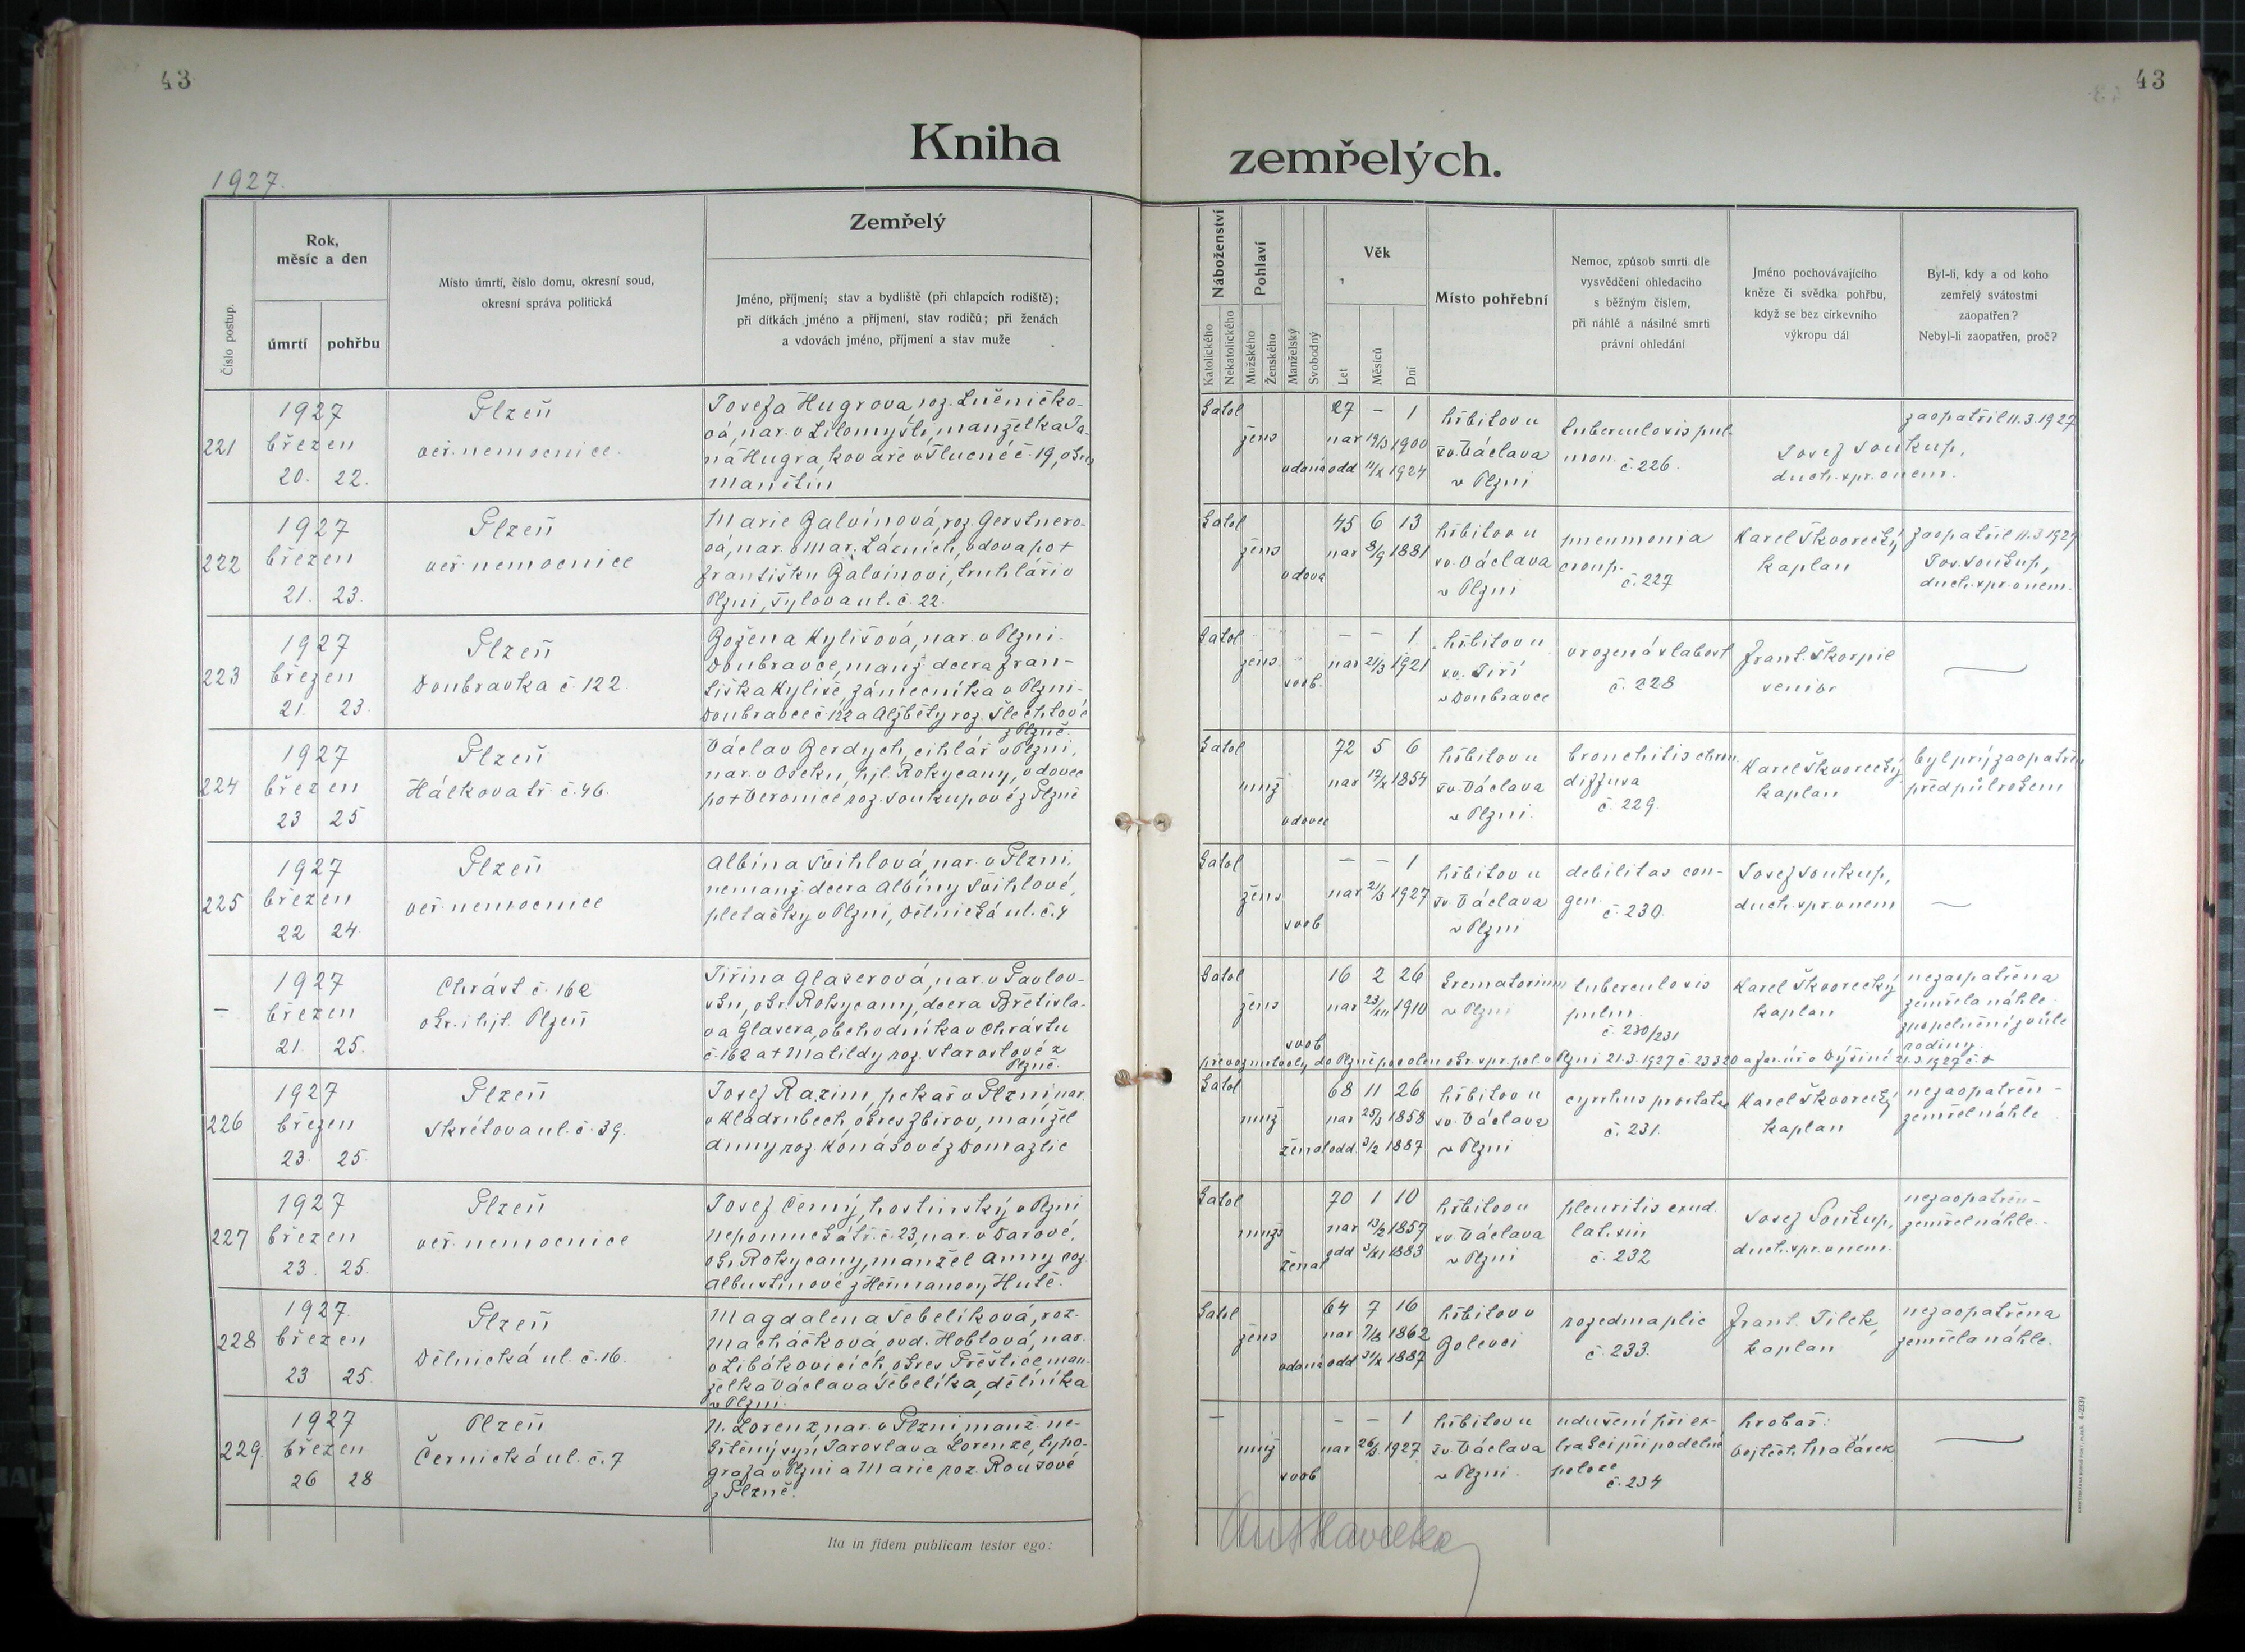 43
43
Kniha zemřelých.
1927.
Číslo postup.
Rok, měsíc a den
úmrtí
pohřbu
Místo úmrtí, číslo domu, okresní soud,
okresní správa politická
Zemřelý
Jméno, příjmení; stav a bydliště (při chlapcích rodiště);
při dítkách jméno a příjmení, stav rodičů; při ženách
a vdovách jméno, příjmení a stav muže
Náboženství
Katolického
Nekatolického
Pohlaví
Mužského
Ženského
Manželský
Svobodný
Věk
Let
Měsíců
Dní
Místo pohřební
Nemoc, způsob smrti dle
vysvědčení ohledacího
s běžným číslem,
při náhlé a násilné smrti
právní ohledání
Jméno pochovávajícího
kněze či svědka pohřbu,
když se bez církevního
výkropu dál
Byl-li, kdy a od koho
zemřelý svátostmi
zaopatřen?
Nebyl-li zaopatřen, proč?
221
1927
březen
20. 22.
Plzeň
veř. nemocnice.
Josefa Hugrova, roz. Lněničko-
vá, nar. v Litomyšli, manželka Ja-
na Hugra, kováře v Tlucné č. 19, okres
Manětín
katol
žens
vdaná
27 – 1
nar 19/3 1900
odd 11/X 1924
hřbitov u
sv. Václava
v Plzni
tuberculosis pul-
mon.
č. 226.
Josef Soukup,
duch. spr. v nem.
zaopatřil 11.3.1927
222
1927
březen
21. 23.
Plzeň
veř. nemocnice
Marie Balvínová, roz. Gerstnero-
vá, nar. v Mar. Lázních, vdova po †
Františku Balvínovi, truhláři v
Plzni, Tylova ul. č. 22.
katol
žens
vdova
45 6 13
nar 8/9 1881
hřbitov u
sv. Václava
v Plzni
pneumonia
croup.
č. 227
Karel Škvorecký
kaplan
zaopatřil 11.3.1927
Jos. Soukup,
duch. spr. v nem.
223
1927
březen
21. 23.
Plzeň
Doubravka č 122.
Božena Kylišová, nar. v Plzni-
Doubravce, manž. dcera Fran-
tiška Kyliše, zámečníka v Plzni-
Doubravce č. 122 a Alžběty roz. Šlechtové
z Plzně.
katol
žens.
svob.
– – 1
nar 21/3 1921
hřbitov u
sv. Jiří
v Doubravce
vrozená slabost
č. 228
Frant. Škorpil
senior
—
224
1927
březen
23 25
Plzeň
Hálkova tř. č. 46.
Václav Berdych, cihlář v Plzni,
nar. v Oseku, hjt. Rokycany, vdovec
po † Veronice roz. Soukupové z Plzně
katol
muž
vdovec
72 5 6
nar 17/X 1854
hřbitov u
sv. Václava
v Plzni.
bronchitis chron.
diffusa
č. 229.
Karel Škvorecký
kaplan
byl prý zaopatřen
před půl rokem
225
1927
březen
22 24.
Plzeň
veř. nemocnice
Albína Švihlová, nar. v Plzni,
nemanž. dcera Albíny Švihlové,
pletačky v Plzni, Dělnická ul. č. 4
katol
žens
svob
– – 1
nar 21/3 1927
hřbitov u
sv. Václava
v Plzni
debilitas con-
gen.
č. 230.
Josef Soukup,
duch. spr. v nem
—
–
1927
březen
21. 25.
Chrást č. 162
okr. i hjt. Plzeň
Jiřina Glaserová, nar. v Pavlov-
sku, okr. Rokycany, dcera Břetisla-
va Glasera, obchodníka v Chrástu
č. 162 a † Matildy roz. Starostové z
Plzně.
katol
žens
svob
16 2 26
nar 23/XII 1910
krematorium
v Plzni
tuberculosis
pulm.
č. 230/231
Karel Škvorecký
kaplan
nezaopatřena
zemřela náhle.
zpopelnění z vůle
rodiny.
převoz mrtvoly do Plzně povolen okr. spr. pol. v Plzni 21.3.1927 č. 23320 a far. úř. v Dýšině 21.3.1927 č. †
226
1927
březen
23. 25.
Plzeň
Skrétova ul. č. 39.
Josef Razim, pekař v Plzni, nar.
v Kladrubech, okres Zbirov, manžel
Anny roz. Konášové z Domažlic
katol
muž
ženat
68 11 26
nar 25/3 1858
odd. 3/2 1887
hřbitov u
sv. Václava
v Plzni
cyrrhus prostatae
č. 231.
Karel Škvorecký
kaplan
nezaopatřen –
zemřel náhle
227
1927
březen
23. 25.
Plzeň
veř. nemocnice
Josef Černý, hostinský v Plzni
Nepomucká tř. č. 23, nar. v Darové,
okr. Rokycany, manžel Anny roz.
Albustinové z Heřmanovy Hutě.
katol
muž
ženat
70 1 10
nar 13/2 1857
odd 3/XI 1883
hřbitov u
sv. Václava
v Plzni
pleuritis exud.
lat. sin
č. 232
Josef Soukup,
duch. spr. v nem.
nezaopatřen –
zemřel náhle.
228
1927.
březen
23 25.
Plzeň
Dělnická ul. č. 16.
Magdalena Šebelíková, roz.
Macháčková, ovd. Hoblová, nar.
v Libákovicích, okres Přeštice, man-
želka Václava Šebelíka, dělníka
v Plzni.
katol
žens
vdaná
64 7 16
nar 7/8 1862
odd 31/X 1887
hřbitov v
Bolevci
rozedma plic
č. 233.
Frant. Jílek,
kaplan
nezaopatřena
zemřela náhle.
229.
1927
březen
26 28
Plzeň
Černická ul. č. 7
N. Lorenz, nar. v Plzni, manž. ne-
křtěný syn Jaroslava Lorenze, typo-
grafa v Plzni a Marie roz. Rousové
z Plzně.
–
muž
svob
– – 1
nar 26/3 1927
hřbitov u
sv. Václava
v Plzni.
udušení při ex-
trakci při podélné
poloze
č. 234
hrobař:
Vojtěch
—
Ita in fidem publicam testor ego: